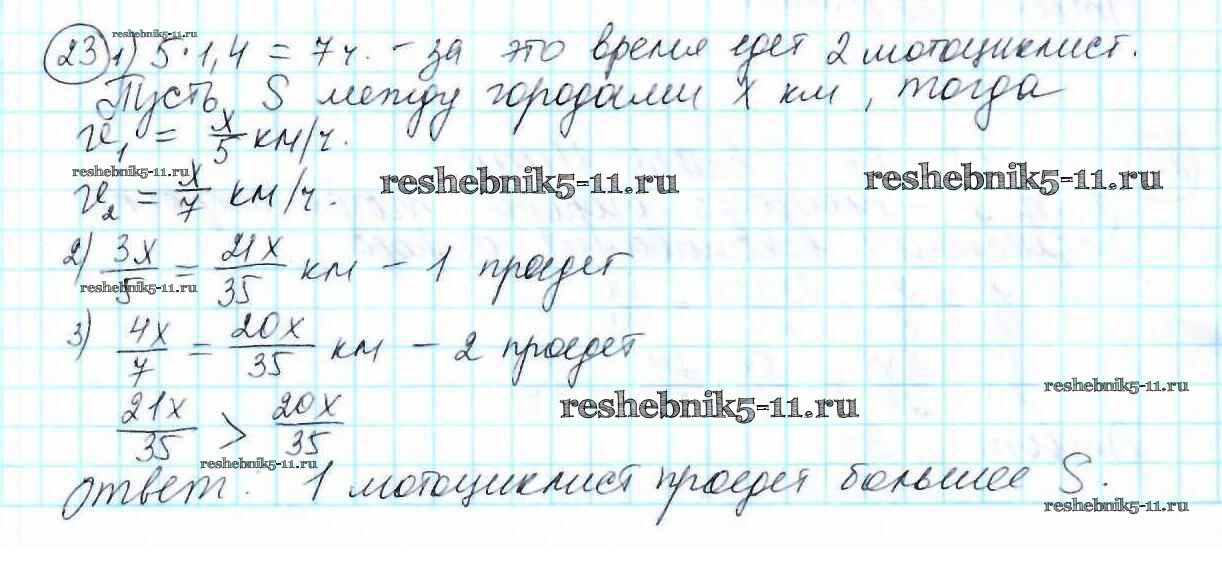 reshebnik5-11.ru
23 1) 5·1,4 = 7ч. – за это время едет 2 мотоциклист.
Пусть S между городами x км, тогда
v₁ = x/5 км/ч.
reshebnik5-11.ru reshebnik5-11.ru reshebnik5-11.ru
v₂ = x/7 км/ч.
2) 3x/5 = 21x/35 км – 1 проедет
reshebnik5-11.ru
3) 4x/7 = 20x/35 км – 2 проедет
reshebnik5-11.ru
21x/35 > 20x/35 reshebnik5-11.ru
reshebnik5-11.ru
Ответ. 1 мотоциклист проедет большее S.
reshebnik5-11.ru